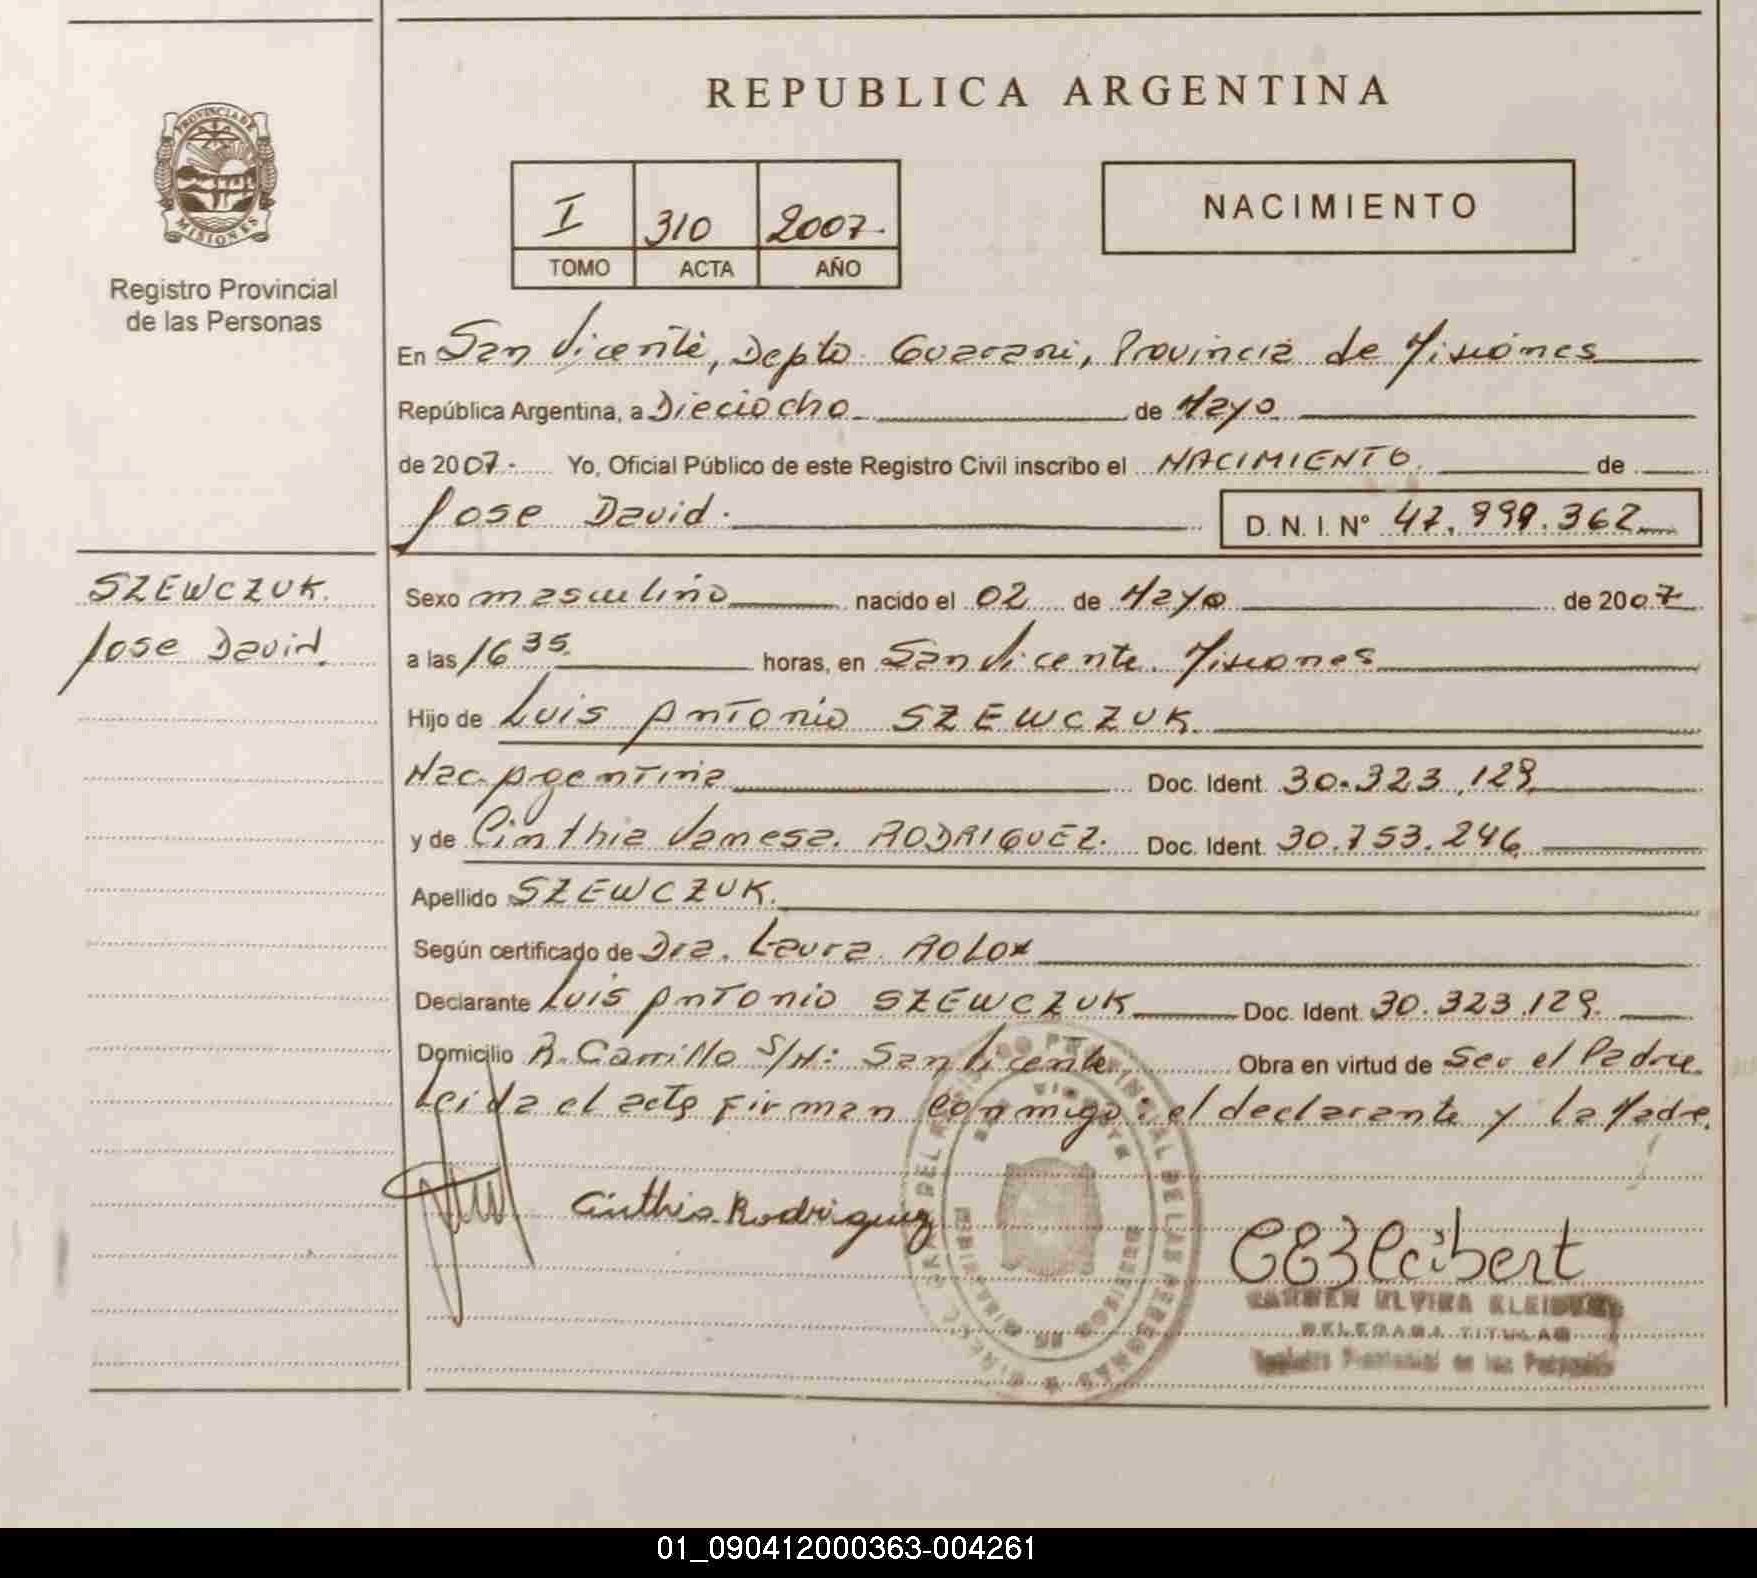 REPUBLICA ARGENTINA
PROVINCIA DE MISIONES
Registro Provincial
de las Personas
I 310 2007.
TOMO ACTA AÑO
NACIMIENTO
En San Vicente, Depto Guarani, Provincia de Misiones
República Argentina, a Dieciocho de Mayo
de 2007. Yo, Oficial Público de este Registro Civil inscribo el NACIMIENTO. de
Jose David.
D. N. I. N° 47.999.362
SZEWCZUK.
Jose David.
Sexo masculino nacido el 02 de Mayo de 2007
a las 16 35 horas, en San Vicente. Misiones
Hijo de Luis Antonio SZEWCZUK.
Nac. Argentina Doc. Ident. 30.323.129
y de Cinthia Vanesa. RODRIGUEZ. Doc. Ident. 30.753.246
Apellido SZEWCZUK.
Según certificado de Dra. Laura
Declarante Luis Antonio SZEWCZUK Doc. Ident. 30.323.129.
Domicilio R. Carrillo S/N: San Vicente, Obra en virtud de Ser el Padre
Leida el acta firman conmigo: el declarante y La Madre.
Cinthia Rodriguez
CARMEN ELVIRA
DELEGADA TITULAR
Registro Provincial de las Personas
01_090412000363-004261